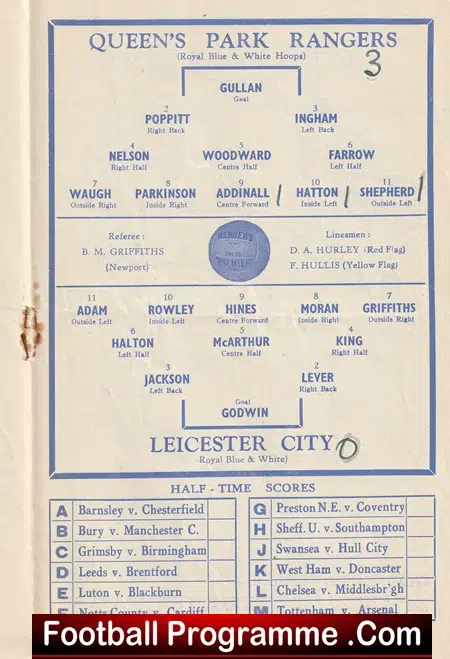 QUEEN'S PARK RANGERS
(Royal Blue & White Hoops)
3
GULLAN
Goal
2 3
POPPITT INGHAM
Right Back Left Back
4 5 6
NELSON WOODWARD FARROW
Right Half Centre Half Left Half
7 8 9 10 11
WAUGH PARKINSON ADDINALL / HATTON / SHEPHERD /
Outside Right Inside Right Centre Forward Inside Left Outside Left
Referee : Linesmen :
B. M. GRIFFITHS D. A. HURLEY (Red Flag)
(Newport) F. HULLIS (Yellow Flag)
11 10 9 8 7
ADAM ROWLEY HINES MORAN GRIFFITHS
Outside Left Inside Left Centre Forward Inside Right Outside Right
6 5 4
HALTON McARTHUR KING
Left Half Centre Half Right Half
3 2
JACKSON LEVER
Left Back Right Back
Goal
GODWIN
LEICESTER CITY 0
(Royal Blue & White)
HALF-TIME SCORES
A Barnsley v. Chesterfield G Preston N.E. v. Coventry
B Bury v. Manchester C. H Sheff. U. v. Southampton
C Grimsby v. Birmingham J Swansea v. Hull City
D Leeds v. Brentford K West Ham v. Doncaster
E Luton v. Blackburn L Chelsea v. Middlesbr'gh
F Notts County v. Cardiff M Tottenham v. Arsenal
Football Programme .Com